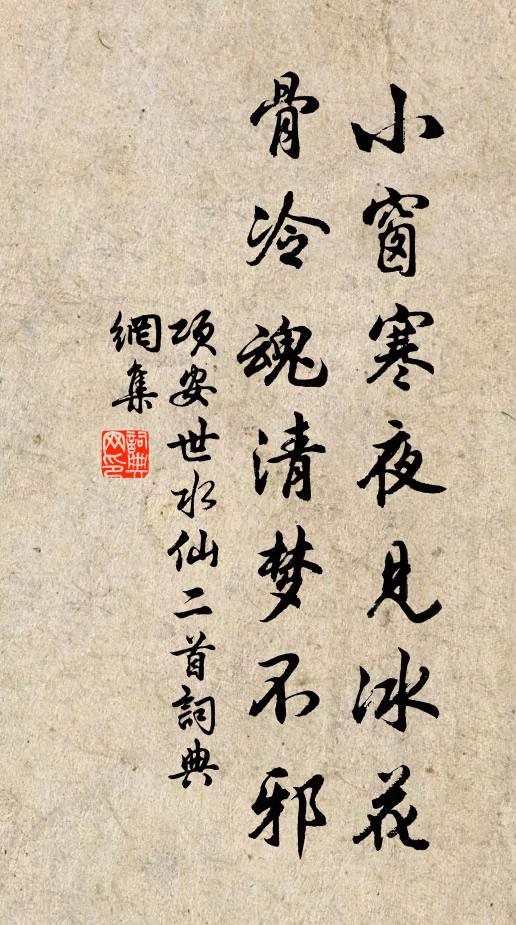 小窗寒夜見冰花
骨冷魂清梦不邪
项安世水仙二首詞典
網集
詞典网印